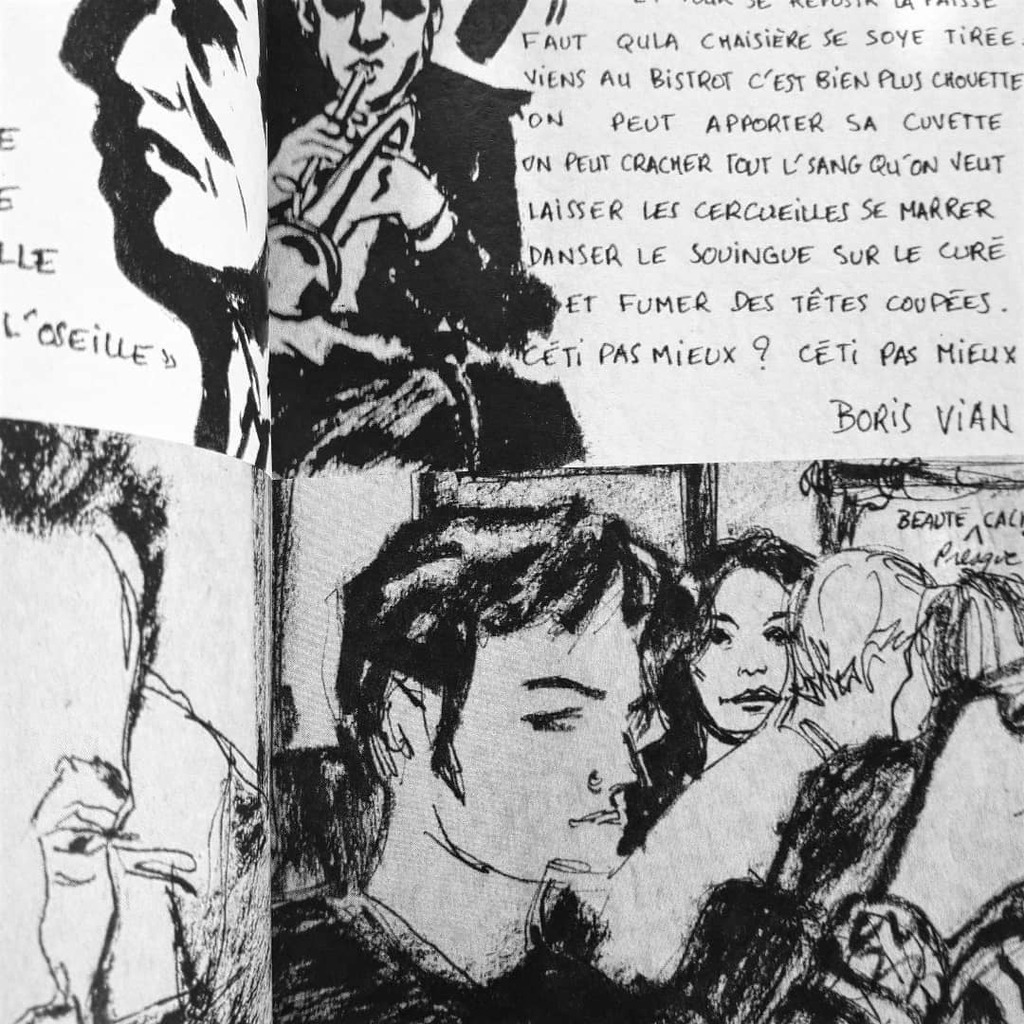 E
E
LLE
L'OSEILLE »
"
ET POUR SE
FAUT QULA CHAISIÈRE SE SOYE TIRÉE.
VIENS AU BISTROT C'EST BIEN PLUS CHOUETTE
ON PEUT APPORTER SA CUVETTE
ON PEUT CRACHER TOUT L'SANG QU'ON VEUT
LAISSER LES CERCUEILLES SE MARRER
DANSER LE SOUINGUE SUR LE CURÉ
ET FUMER DES TÊTES COUPÉES.
CÉTI PAS MIEUX ? CÉTI PAS MIEUX
BORIS VIAN
BEAUTÉ CALI
Presque